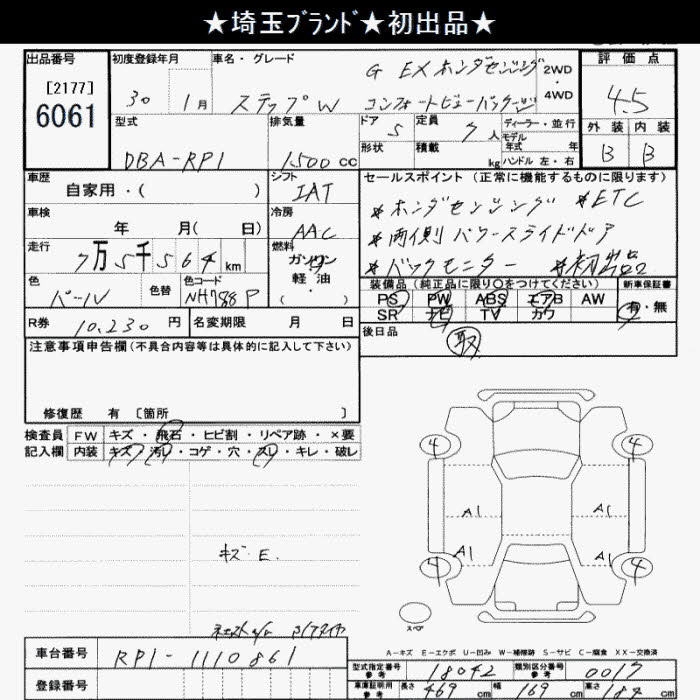 ★埼玉ﾌﾞﾗﾝﾄﾞ★初出品★
出品番号 初度登録年月 車名・グレード 評価点
[2177]
6061
30 1月 ステップW G EX ホンダセンシング 2WD・4WD
コンフォートビューパッケージ
4.5
型式 排気量 ドア 5 定員 7人 ディーラー・並行
モデル年式 年
外装 内装
B B
DBA-RP1 1500cc 形状 積載 kg ハンドル 左・右
車歴 シフト セールスポイント (正常に機能するものに限ります)
自家用・( ) IAT
*ホンダセンシング *ETC
車検 冷房
年 月( 日) AAC
*両側パワースライドドア
走行 燃料
7万5千564km ガソリン・軽油・( )
*バックモニター *初出品
色 色替 色コード
パール NH788P
装備品 (純正品に限り○をつけてください) 新車保証書
PS PW ABS エアB AW
SR ナビ TV カワ
有・無
R券 10,230円 名変期限 月 日
後日品
取
注意事項申告欄(不具合内容等は具体的に記入して下さい)
修復歴 有 [箇所 ]
検査員 FW キズ・飛石・ヒビ割・リペア跡・×要
記入欄 内装 キズ・汚レ・コゲ・穴・スレ・キレ・破レ
4 4
A1 A1
キズ・E.
A1 A1
4 4
スペア
A-キズ E-エクボ U-凹み W-補修跡 S-サビ C-腐食 XX-交換済
車台番号 RP1-1110861
登録番号
型式指定番号 参考 18042 類別区分番号 参考 0017
車庫証明用 参考 長さ 469cm 幅 169cm 高さ 184cm